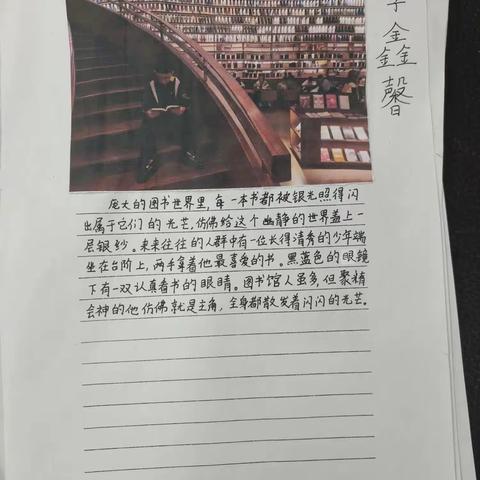 鑫
馨
庞大的图书世界里,每一本书都被银光照得闪
出属于它们的光芒,仿佛给这个幽静的世界盖上一
层银纱。来来往往的人群中有一位长得清秀的少年端
坐在台阶上,两手拿着他最喜爱的书。黑蓝色的眼镜
下有一双认真看书的眼睛。图书馆人虽多,但聚精
会神的他仿佛就是主角,全身都散发着闪闪的光芒。